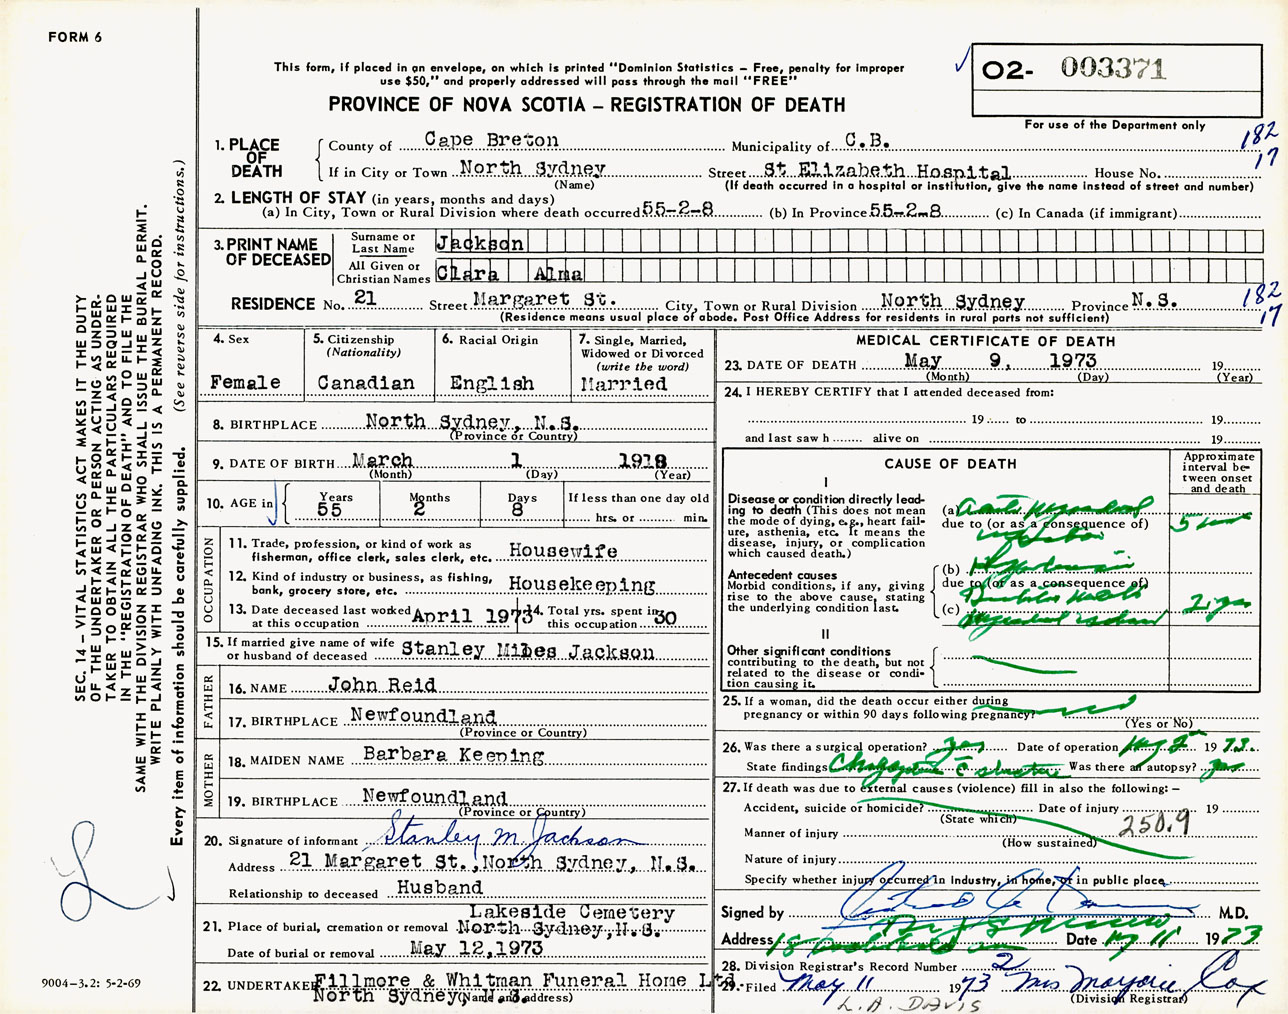 FORM 6
This form, if placed in an envelope, on which is printed "Dominion Statistics – Free, penalty for improper
use $50," and properly addressed will pass through the mail "FREE"
PROVINCE OF NOVA SCOTIA – REGISTRATION OF DEATH
02- 003371
For use of the Department only
182
17
1. PLACE OF DEATH
County of Cape Breton Municipality of C.B.
If in City or Town North Sydney Street St Elizabeth Hospital House No.
(Name) (If death occurred in a hospital or institution, give the name instead of street and number)
2. LENGTH OF STAY (in years, months and days)
(a) In City, Town or Rural Division where death occurred 55-2-8 (b) In Province 55-2-8 (c) In Canada (if immigrant)
3. PRINT NAME OF DECEASED
Surname or Last Name Jackson
All Given or Christian Names Clara Alma
RESIDENCE No. 21 Street Margaret St. City, Town or Rural Division North Sydney Province N.S.
(Residence means usual place of abode. Post Office Address for residents in rural parts not sufficient)
182
17
4. Sex Female
5. Citizenship (Nationality) Canadian
6. Racial Origin English
7. Single, Married, Widowed or Divorced (write the word) Married
8. BIRTHPLACE North Sydney, N.S.
(Province or Country)
9. DATE OF BIRTH March 1 1918
(Month) (Day) (Year)
10. AGE in Years 55 Months 2 Days 8 If less than one day old
hrs. or min.
OCCUPATION
11. Trade, profession, or kind of work as fisherman, office clerk, sales clerk, etc. Housewife
12. Kind of industry or business, as fishing, bank, grocery store, etc. Housekeeping
13. Date deceased last worked at this occupation April 1973 14. Total yrs. spent in this occupation 30
15. If married give name of wife or husband of deceased Stanley Miles Jackson
FATHER
16. NAME John Reid
17. BIRTHPLACE Newfoundland
(Province or Country)
MOTHER
18. MAIDEN NAME Barbara Keeping
19. BIRTHPLACE Newfoundland
(Province or Country)
20. Signature of informant Stanley M. Jackson
Address 21 Margaret St., North Sydney, N.S.
Relationship to deceased Husband
Lakeside Cemetery
21. Place of burial, cremation or removal North Sydney, N.S.
Date of burial or removal May 12, 1973
22. UNDERTAKER Fillmore & Whitman Funeral Home Ltd.
North Sydney, N.S.
(Name and address)
MEDICAL CERTIFICATE OF DEATH
23. DATE OF DEATH May 9, 1973 19
(Month) (Day) (Year)
24. I HEREBY CERTIFY that I attended deceased from:
19 to 19
and last saw h alive on 19
CAUSE OF DEATH
Approximate interval between onset and death
I
Disease or condition directly leading to death (This does not mean the mode of dying, e.g., heart failure, asthenia, etc. It means the disease, injury, or complication which caused death.)
(a)
due to (or as a consequence of)
5
Antecedent causes
Morbid conditions, if any, giving rise to the above cause, stating the underlying condition last.
(b)
due to (or as a consequence of)
(c)
2
II
Other significant conditions
contributing to the death, but not related to the disease or condition causing it.
25. If a woman, did the death occur either during
pregnancy or within 90 days following pregnancy?
(Yes or No)
26. Was there a surgical operation? Yes Date of operation 1973
State findings Was there an autopsy?
27. If death was due to external causes (violence) fill in also the following: –
Accident, suicide or homicide? Date of injury 19
(State which)
250.9
Manner of injury
(How sustained)
Nature of injury
Specify whether injury occurred in Industry, in home, or in public place
Signed by M.D.
Address Date 11 1973
28. Division Registrar's Record Number 2
29. Filed May 11 1973 Mrs Marjorie Cox
(Division Registrar)
L.A. DAVIS
SEC. 14 – VITAL STATISTICS ACT MAKES IT THE DUTY
OF THE UNDERTAKER OR PERSON ACTING AS UNDER-
TAKER TO OBTAIN ALL THE PARTICULARS REQUIRED
IN THE "REGISTRATION OF DEATH" AND TO FILE THE
SAME WITH THE DIVISION REGISTRAR WHO SHALL ISSUE THE BURIAL PERMIT.
WRITE PLAINLY WITH UNFADING INK. THIS IS A PERMANENT RECORD.
Every item of information should be carefully supplied. (See reverse side for instructions.)
9004–3.2: 5-2-69